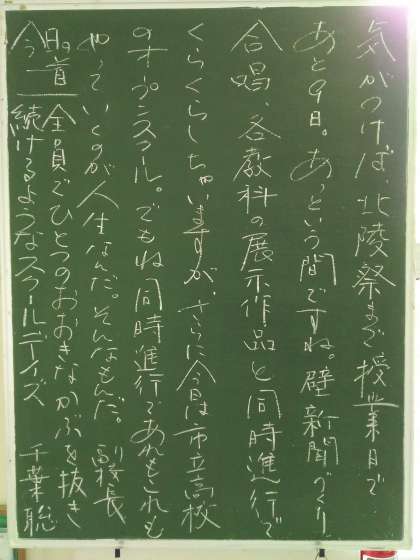 気がつけば、北陵祭まで授業日で
あと9日。あっという間ですね。壁新聞づくり
合唱、各教科の展示作品と同時進行で
くらくらしちゃいますが、さらに今日は市立高校
のオープンスクール。でもね同時進行であれもこれも
やっていくのが人生なんだ。そんなもんだ。副校長
今日の一首 全員でひとつのおおきなかぶを抜き
続けるようなスクールデイズ 千葉聡